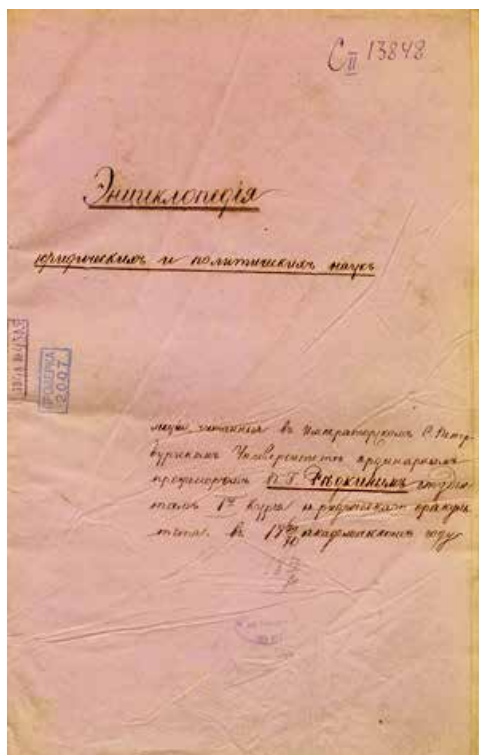 С II 13848
Энциклопедія
юридическихъ и политическихъ наукъ
ПРОВЕРКА
2007
читанныя въ Императорскомъ С. Петер-
бургскомъ Университетѣ ординарнымъ
профессоромъ П. Г. Рѣдкинымъ студен-
тамъ 1го курса юридическаго факуль-
тета въ академическомъ году